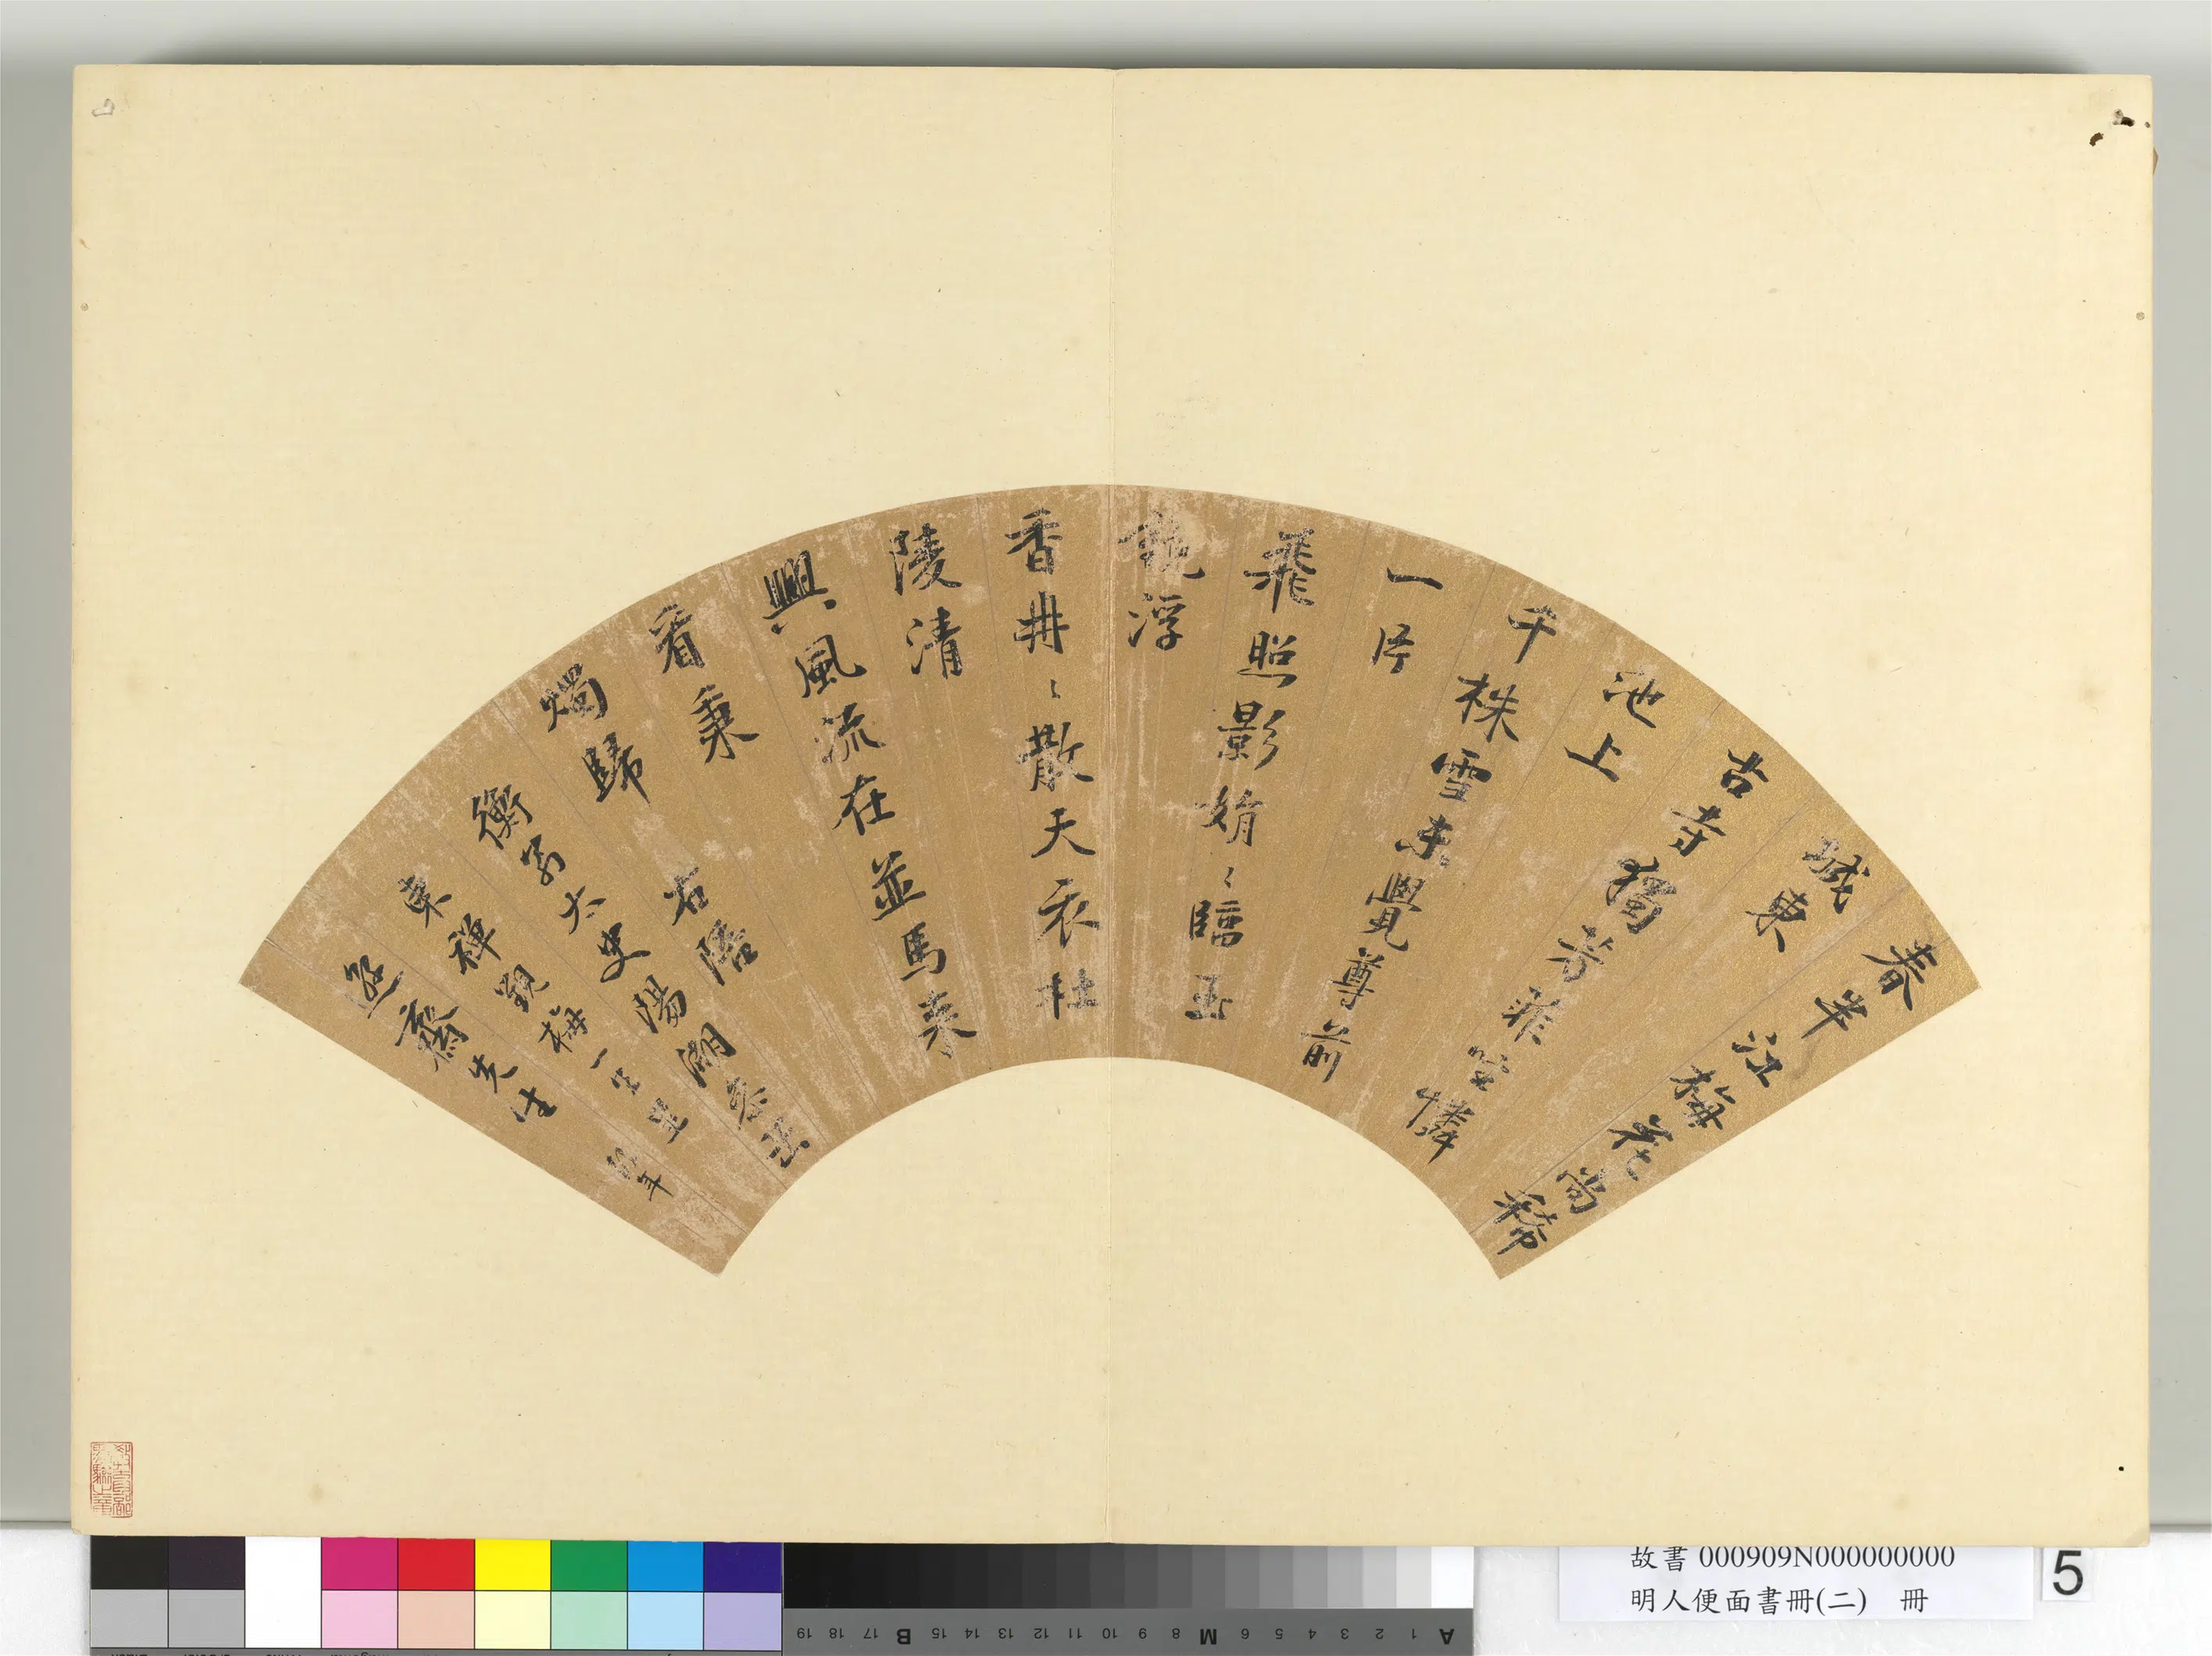 春半江梅花尚稀
城東
古寺獨芳菲空憐
池上
千株雪未覺尊前
一片
飛照影娟〻臨玉
鏡浮
香冉〻散天衣杜
陵清
興風流在並馬来
看秉
燭歸 右陪
衡翁太史湯
東禪觀梅一首呈
齋先生 年
故書 000909N000000000
明人便面書冊(二) 冊
5
A 1 2 3 4 5 6 M 8 9 10 11 12 13 14 15 B 17 18 19